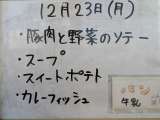 12月23日(月)
・豚肉と野菜のソテー
・スープ
・スイートポテト
・カレーフィッシュ
牛乳